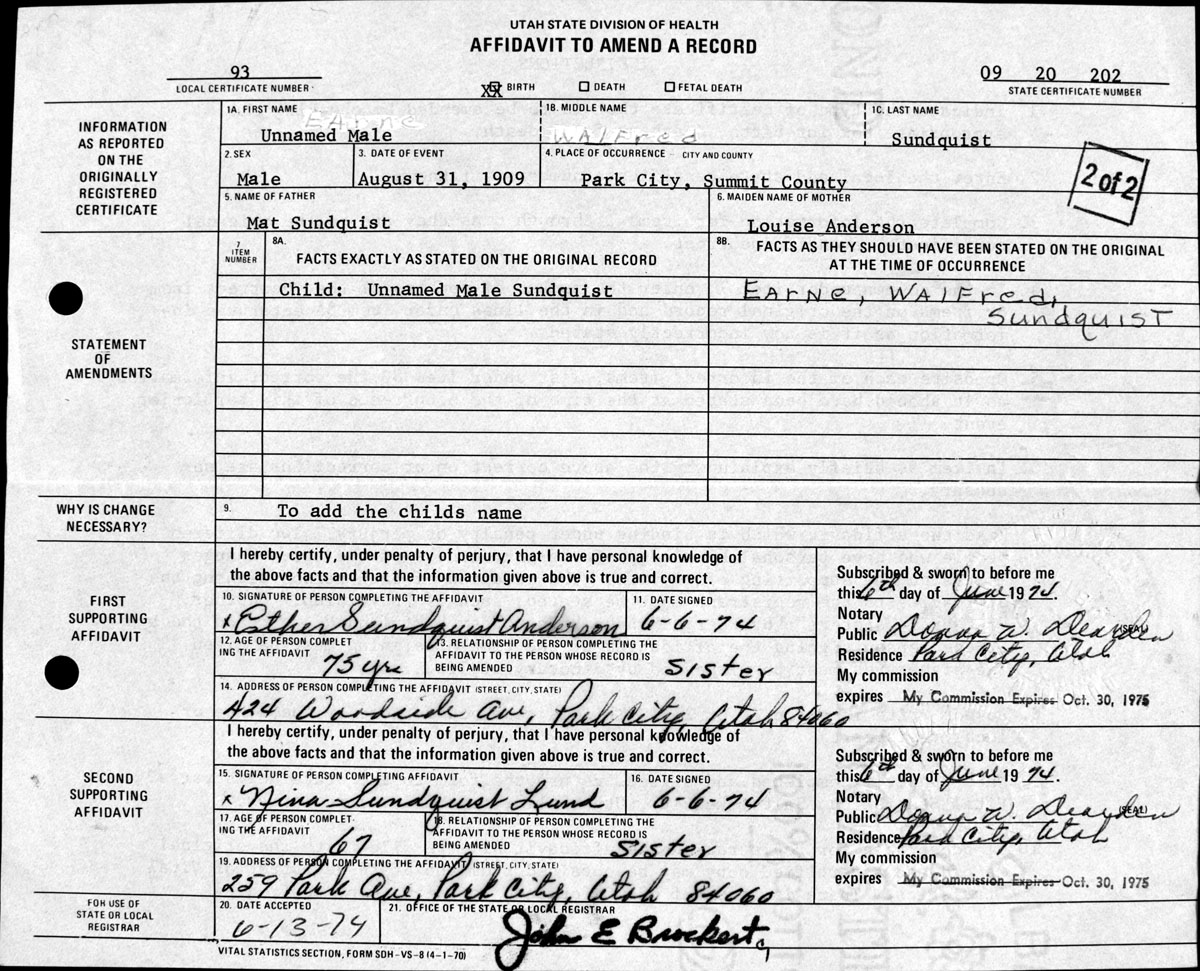 UTAH STATE DIVISION OF HEALTH
AFFIDAVIT TO AMEND A RECORD
93
LOCAL CERTIFICATE NUMBER
XX BIRTH DEATH FETAL DEATH
09 20 202
STATE CERTIFICATE NUMBER
INFORMATION AS REPORTED ON THE ORIGINALLY REGISTERED CERTIFICATE
1A. FIRST NAME
EArne
Unnamed Male
1B. MIDDLE NAME
WAlFred
1C. LAST NAME
Sundquist
2. SEX
Male
3. DATE OF EVENT
August 31, 1909
4. PLACE OF OCCURRENCE - CITY AND COUNTY
Park City, Summit County
2 of 2
5. NAME OF FATHER
Mat Sundquist
6. MAIDEN NAME OF MOTHER
Louise Anderson
STATEMENT OF AMENDMENTS
7 ITEM NUMBER
8A. FACTS EXACTLY AS STATED ON THE ORIGINAL RECORD
8B. FACTS AS THEY SHOULD HAVE BEEN STATED ON THE ORIGINAL
AT THE TIME OF OCCURRENCE
Child: Unnamed Male Sundquist
EArne, WAlFred,
SundquisT
WHY IS CHANGE NECESSARY?
9. To add the childs name
FIRST SUPPORTING AFFIDAVIT
I hereby certify, under penalty of perjury, that I have personal knowledge of
the above facts and that the information given above is true and correct.
10. SIGNATURE OF PERSON COMPLETING THE AFFIDAVIT
x Sundquist Anderson
11. DATE SIGNED
6-6-74
12. AGE OF PERSON COMPLETING THE AFFIDAVIT
75 yrs
13. RELATIONSHIP OF PERSON COMPLETING THE
AFFIDAVIT TO THE PERSON WHOSE RECORD IS
BEING AMENDED
Sister
14. ADDRESS OF PERSON COMPLETING THE AFFIDAVIT (STREET, CITY, STATE)
424 Woodside Ave, Park City, Utah 84060
Subscribed & sworn to before me
this 6th day of June 1974.
Notary
Public Donna W. Dearden (SEAL)
Residence Park City, Utah
My commission
expires My Commission Expires Oct. 30, 1975
SECOND SUPPORTING AFFIDAVIT
I hereby certify, under penalty of perjury, that I have personal knowledge of
the above facts and that the information given above is true and correct.
15. SIGNATURE OF PERSON COMPLETING AFFIDAVIT
x Nina Sundquist Lund
16. DATE SIGNED
6-6-74
17. AGE OF PERSON COMPLETING THE AFFIDAVIT
67
18. RELATIONSHIP OF PERSON COMPLETING THE
AFFIDAVIT TO THE PERSON WHOSE RECORD IS
BEING AMENDED
Sister
19. ADDRESS OF PERSON COMPLETING THE AFFIDAVIT (STREET, CITY, STATE)
259 Park Ave, Park City, Utah 84060
Subscribed & sworn to before me
this 6th day of June 1974.
Notary
Public Donna W. Dearden (SEAL)
Residence Park City, Utah
My commission
expires My Commission Expires Oct. 30, 1975
FOR USE OF STATE OR LOCAL REGISTRAR
20. DATE ACCEPTED
6-13-74
21. OFFICE OF THE STATE OR LOCAL REGISTRAR
John E Brockert
VITAL STATISTICS SECTION, FORM SDH-VS-8 (4-1-70)